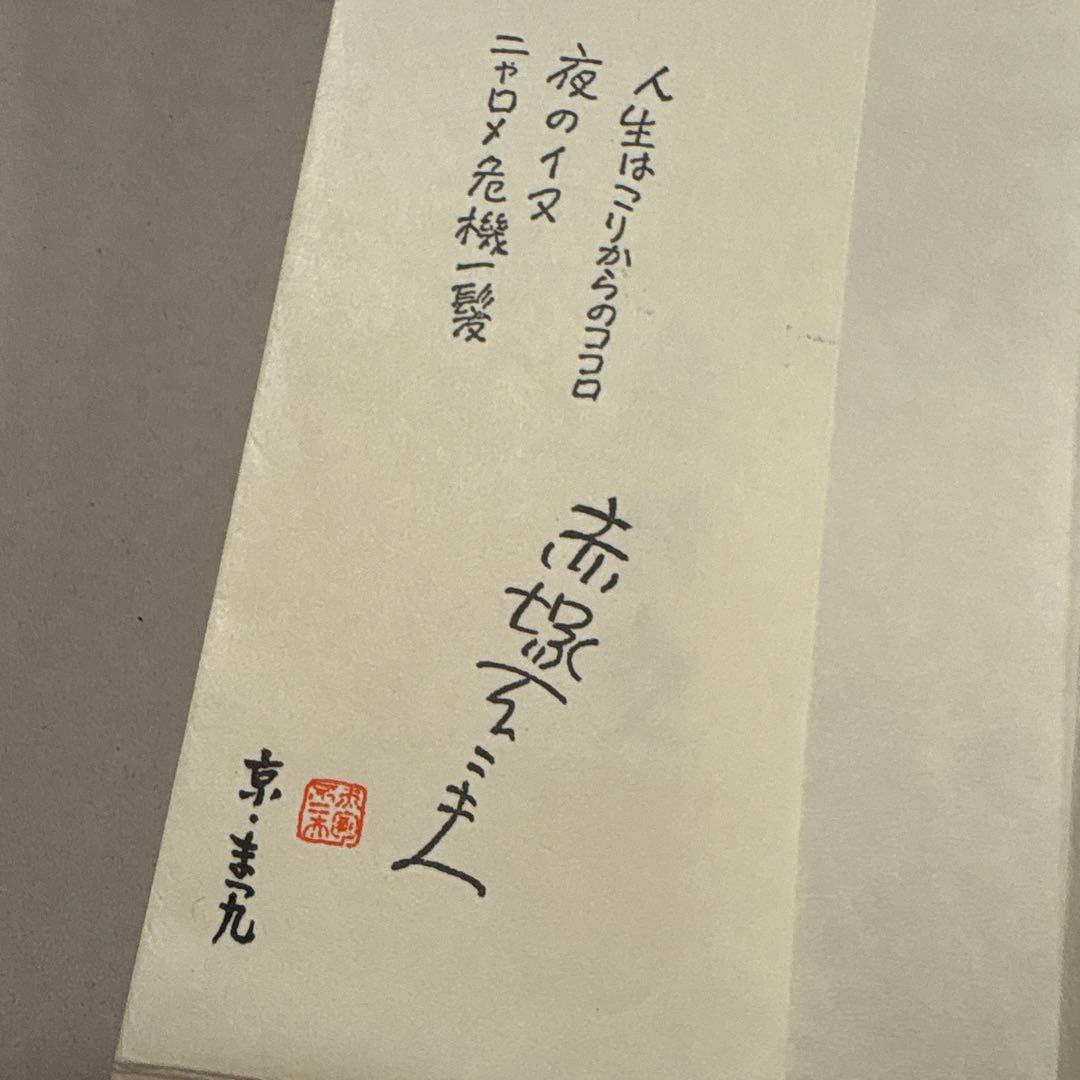 人生はこりからのココロ
夜のイヌ
ニャロメ危機一髪
赤塚不二夫
京・まつ九